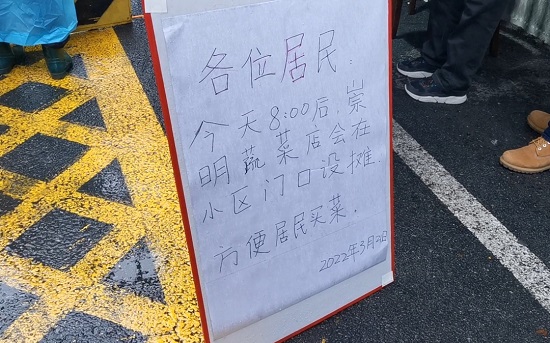 各位居民:
今天8:00后,崇
明蔬菜店会在
小区门口设摊.
方便居民买菜.
2022年3月